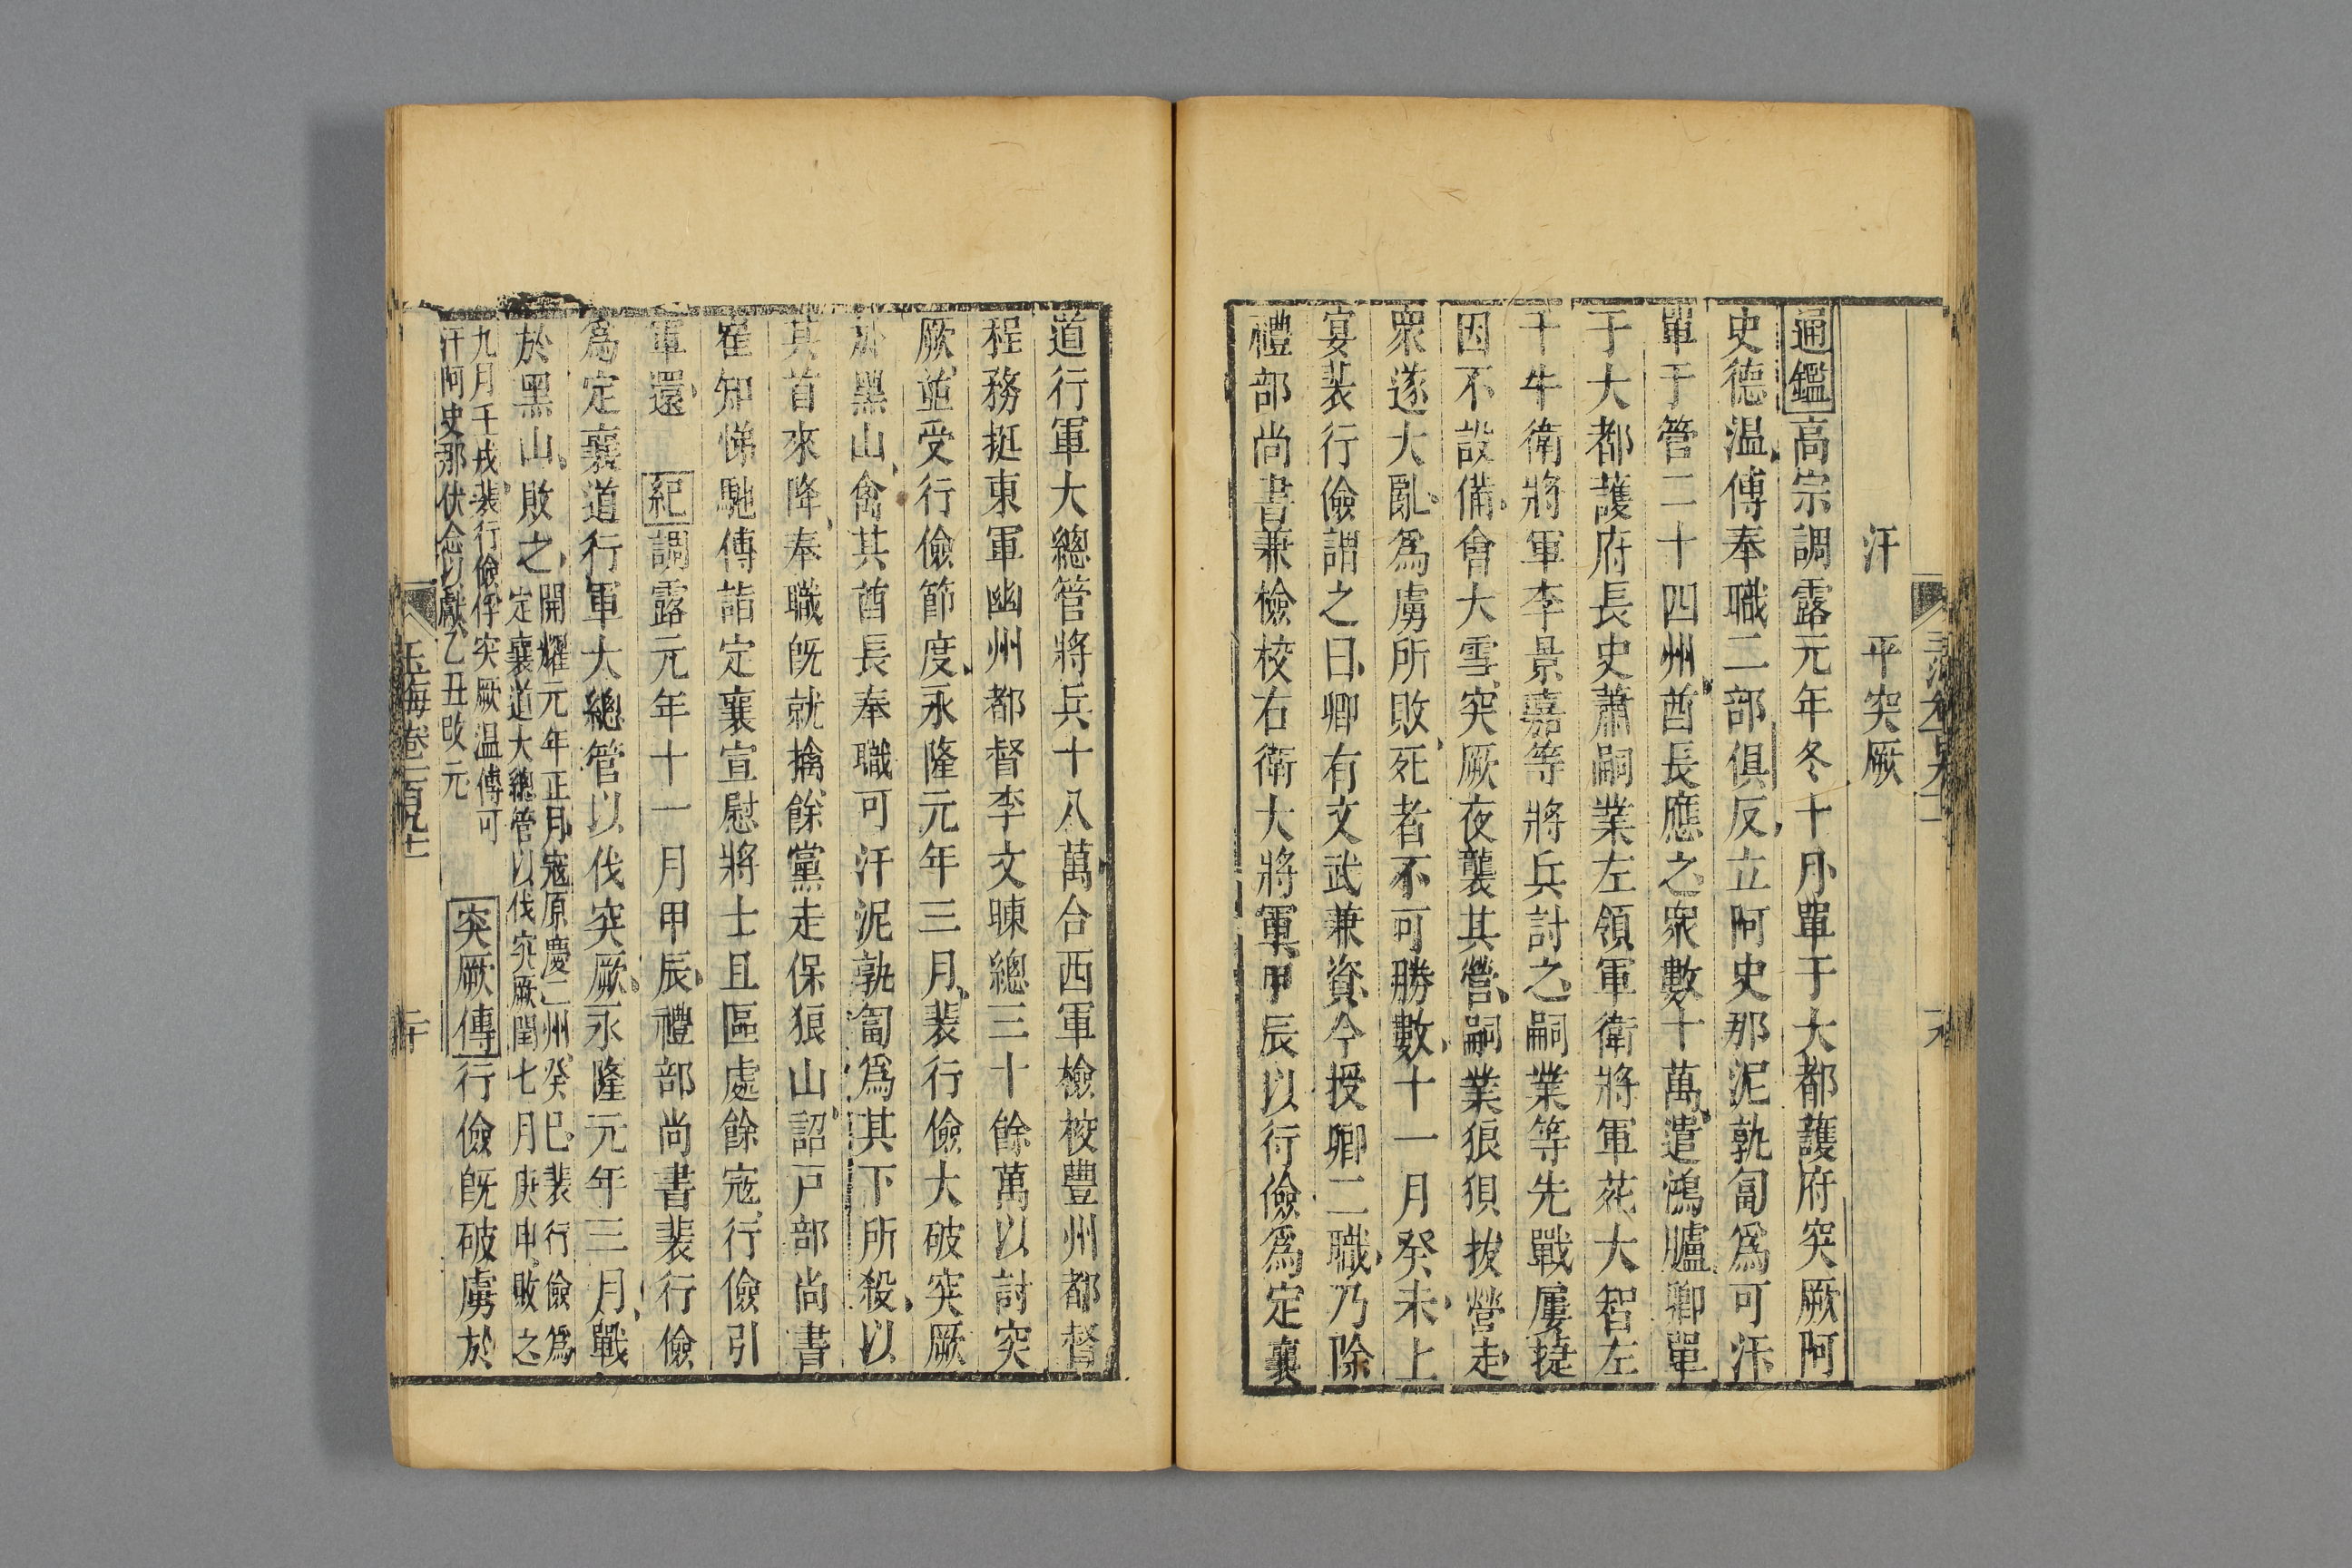 汗　平突厥
通鑑高宗調露元年冬十月單于大都護府突厥阿
史德温傅奉職二部俱反立阿史那泥孰匐爲可汗
單于管二十四州酋長應之衆數十萬遣鴻臚卿單
于大都護府長史蕭嗣業左領軍衛將軍苑大智左
千牛衛將軍李景嘉等將兵討之嗣業等先戰屢捷
因不設備會大雪突厥夜襲其營嗣業狼狽拔營走
衆遂大亂爲虜所敗死者不可勝數十一月癸未上
宴裴行儉謂之曰卿有文武兼資今授卿二職乃除
禮部尚書兼檢校右衛大將軍甲辰以行儉爲定襄
道行軍大總管將兵十八萬合西軍檢校豐州都督
程務挺東軍幽州都督李文暕總三十餘萬以討突
厥並受行儉節度永隆元年三月裴行儉大破突厥
於黑山禽其酋長奉職可汗泥孰匐爲其下所殺以
其首來降奉職既就擒餘黨走保狼山詔戸部尚書
崔知悌馳傳詣定襄宣慰將士且區處餘寇行儉引
軍還　紀調露元年十一月甲辰禮部尚書裴行儉
爲定襄道行軍大總管以伐突厥永隆元年三月戰
於黑山敗之
開耀元年正月寇原慶二州癸巳裴行儉爲
定襄道大總管以伐突厥閏七月庚申敗之
九月壬戌裴行儉俘突厥温傅可
汗阿史那伏念以獻乙丑改元
突厥傳行儉既破虜於
玉海卷
二十